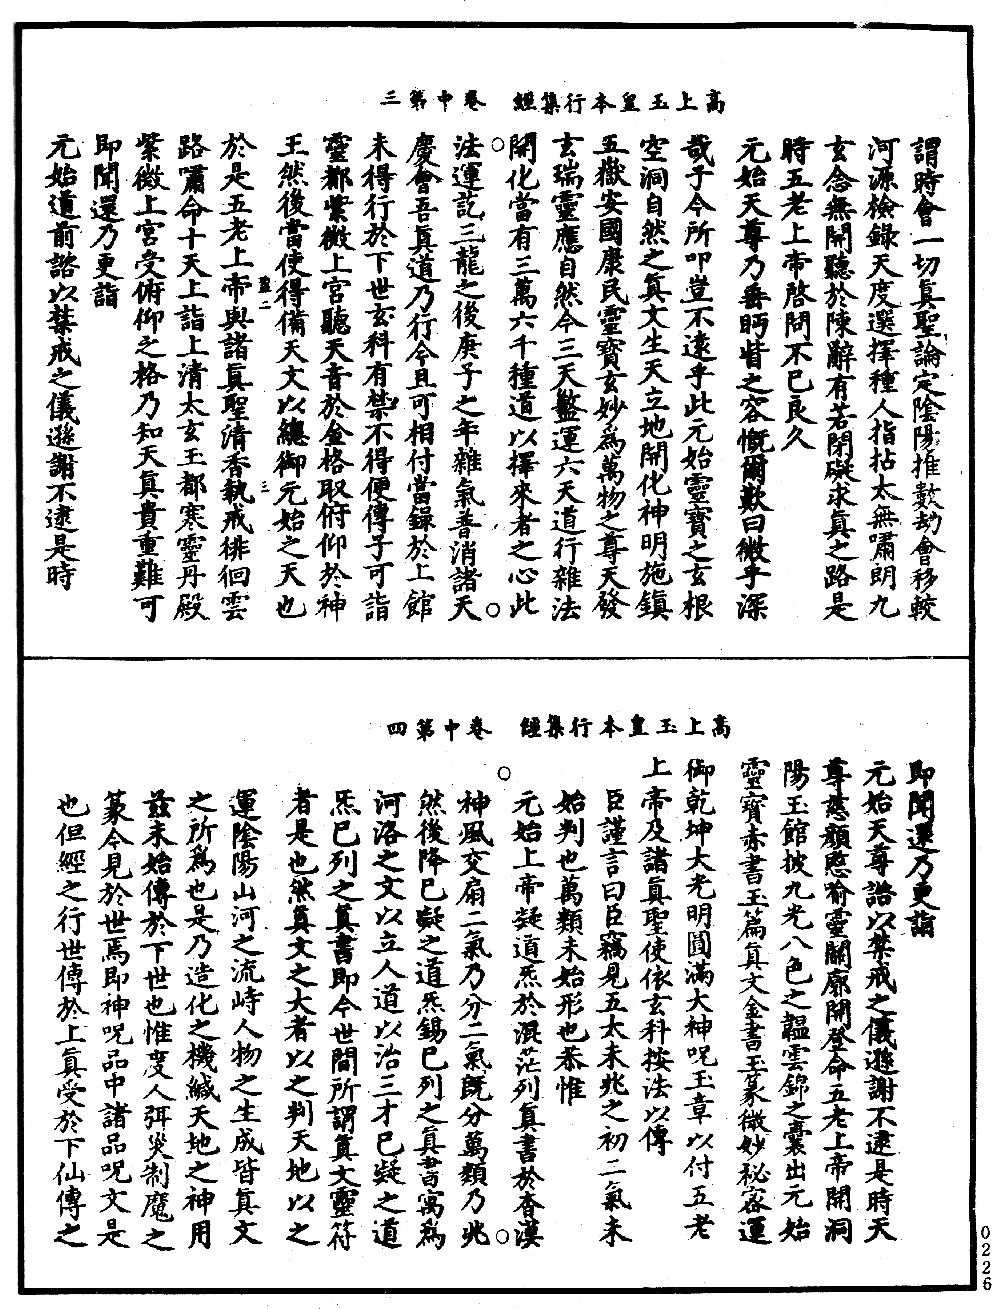 高上玉皇本行集經　卷中第三
謂時會一切真聖論定陰陽推數劫會移較
河源檢錄天度選擇種人指拈太無嘯朗九
玄念無開聽於陳辭有若閉礙求真之路是
時五老上帝啓問不已良久
元始天尊乃垂眄眥之容慨爾歎曰微乎深
哉子今所叩豈不遠乎此元始靈寶之玄根
空洞自然之真文生天立地開化神明施鎮
五嶽安國康民靈寶玄妙為萬物之尊天發
玄瑞靈應自然今三天盤運六天道行雜法
開化當有三萬六千種道以擇來者之心此
法運訖三龍之後庚子之年雜氣普消諸天
慶會吾真道乃行今且可相付當錄於上館
未得行於下世玄科有禁不得便傳子可詣
靈都紫微上宮聽天音於金格取俯仰於神
王然後當使得備天文以總御元始之天也
於是五老上帝與諸真聖清香執戒徘徊雲
路嘯命十天上詣上清太玄玉都寒靈丹殿
紫微上宮受俯仰之格乃知天真貴重難可
即聞還乃更詣
元始道前諮以禁戒之儀遜謝不逮是時
高上玉皇本行集經　卷中第四
即聞還乃更詣
元始天尊諮以禁戒之儀遜謝不逮是時天
尊慈顏愍喻靈關廓開登命五老上帝開洞
陽玉館披九光八色之韞雲錦之囊出元始
靈寶赤書玉篇真文金書玉篆微妙秘密運
御乾坤大光明圓滿大神呪玉章以付五老
上帝及諸真聖使依玄科按法以傳
臣謹言曰臣竊見五太未兆之初二氣未
始判也萬類未始形也恭惟
元始上帝凝道炁於混茫列真書於杳漠
神風交扇二氣乃分二氣既分萬類乃兆
然後降已凝之道炁錫已列之真書寓為
河洛之文以立人道以治三才已凝之道
炁已列之真書即今世間所謂真文靈符
者是也然真文之大者以之判天地以之
運陰陽山河之流峙人物之生成皆真文
之所為也是乃造化之機緘天地之神用
茲未始傳於下世也惟度人弭災制魔之
篆今見於世焉即神呪品中諸品呪文是
也但經之行世傳於上真受於下仙傳之
0226